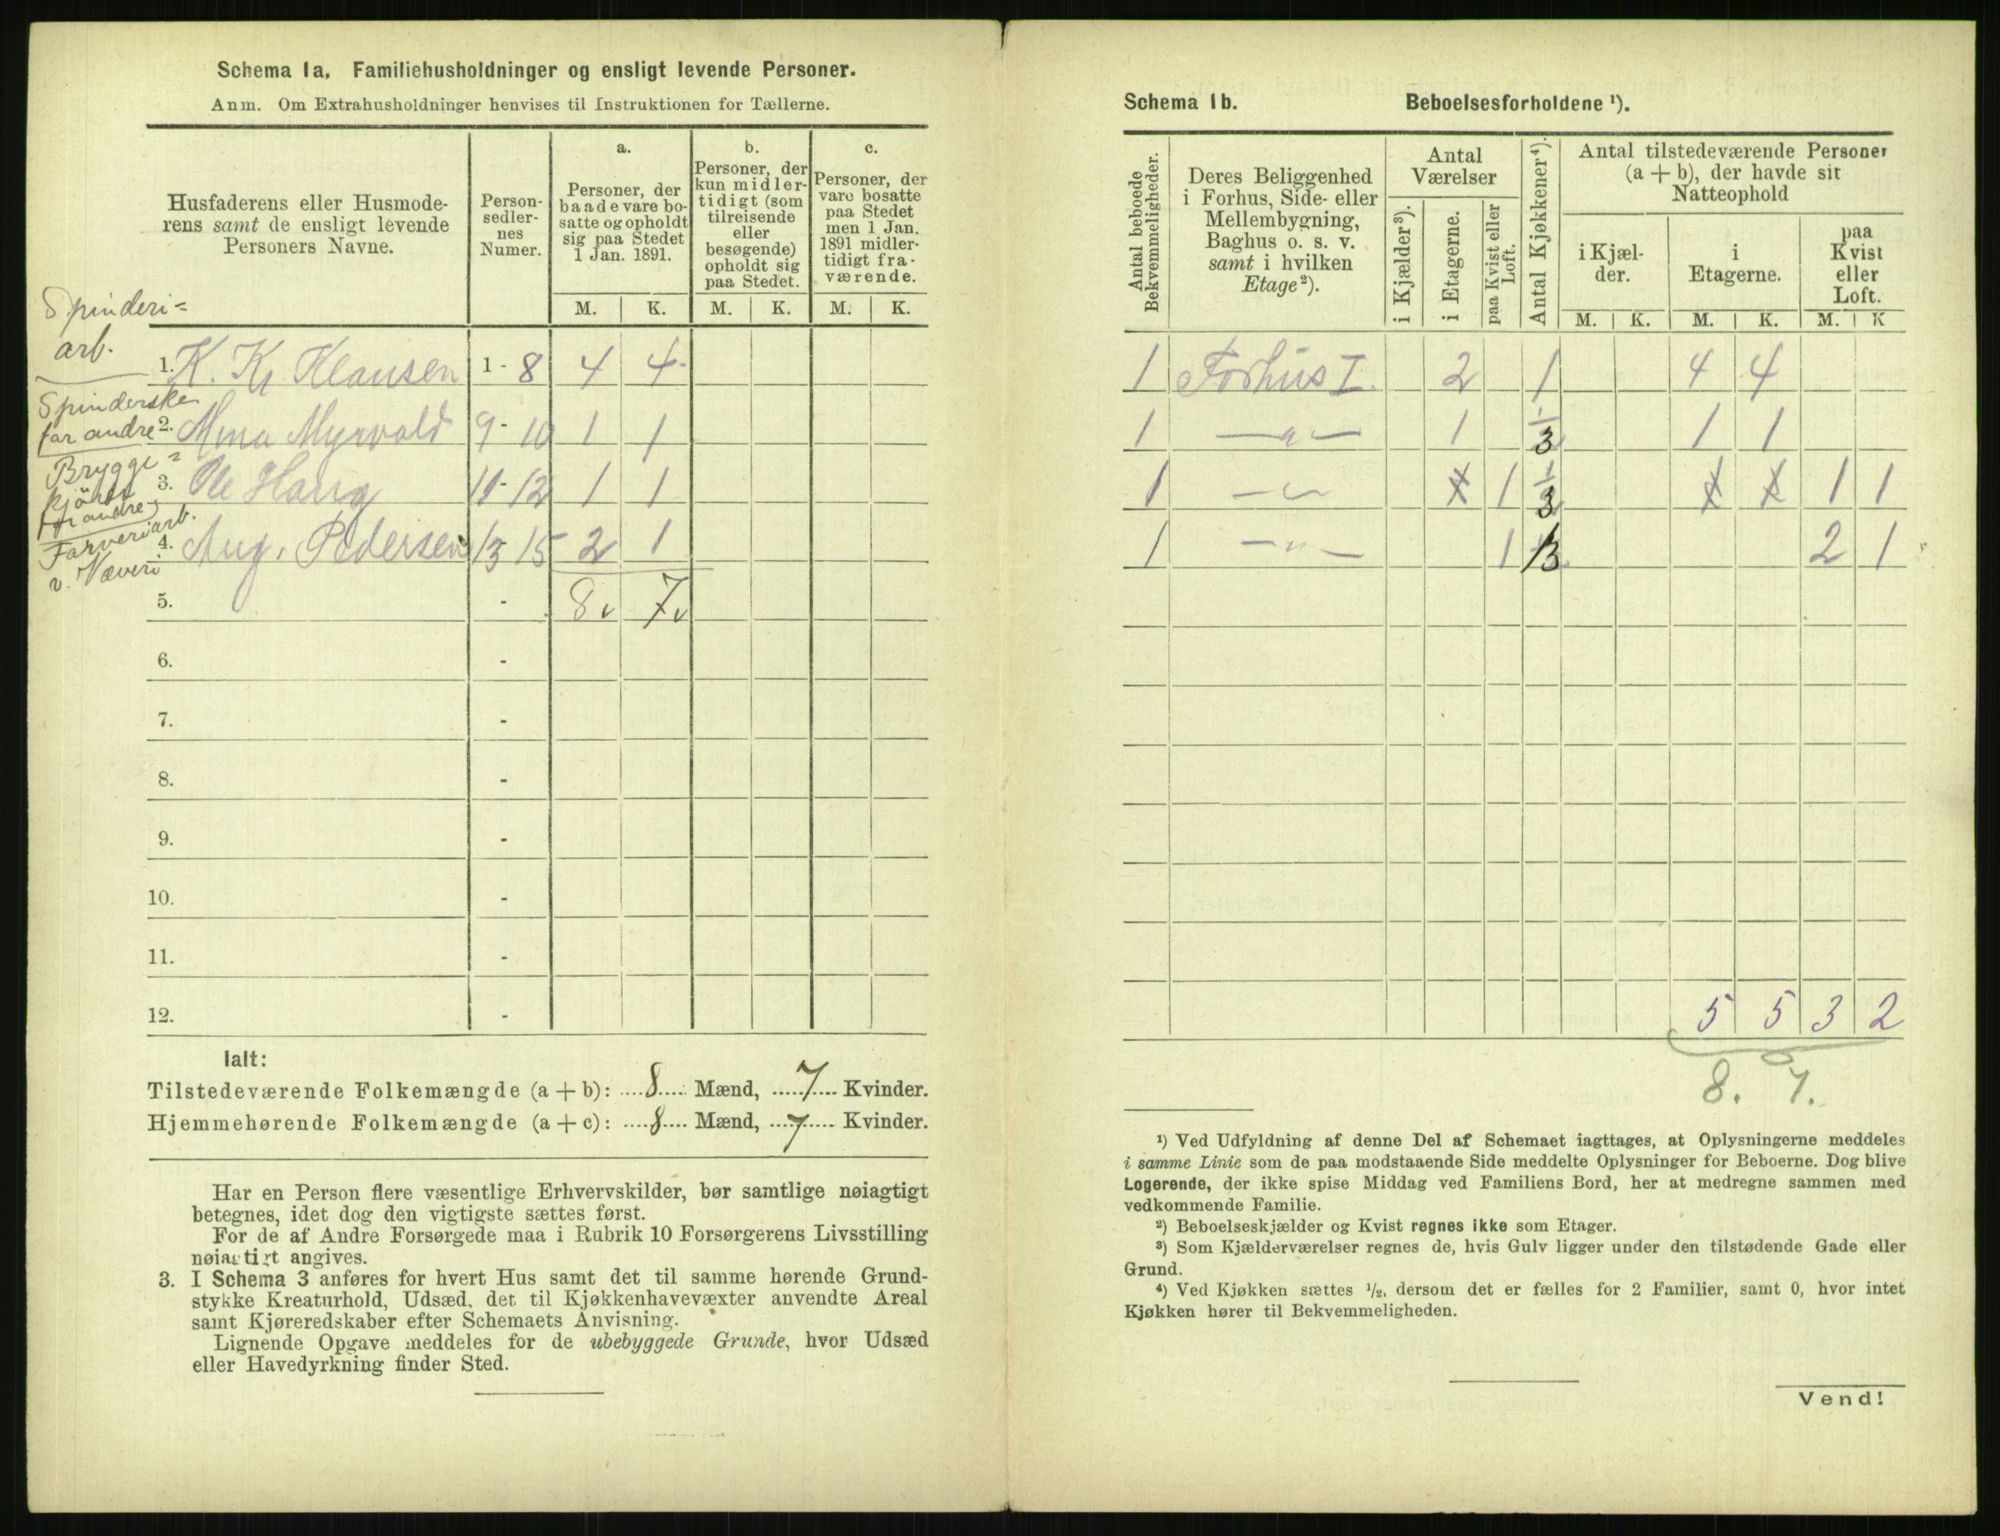 Schema 1a. Familiehusholdninger og ensligt levende Personer.
Anm. Om Extrahusholdninger henvises til Instruktionen for Tællerne.
Husfaderens eller Husmoderens samt de ensligt levende Personers Navne.
Personsedlernes Numer.
a. Personer, der baade vare bosatte og opholdt sig paa Stedet 1 Jan. 1891.
b. Personer, der kun midlertidigt (som tilreisende eller besøgende) opholdt sig paa Stedet.
c. Personer, der vare bosatte paa Stedet men 1 Jan. 1891 midlertidigt fraværende.
M. K. M. K. M. K.
Spinderi=
arb.
1. K. Kr. Klausen 1 - 8 4 4
Spinderske
for andre
2. Mina Myrvold 9 - 10 1 1
Brygge=
3. Ole Haug 11 - 12 1 1
for andre
Farveriarb.
v. Væveri
4. Aug. Pedersen 13 15 2 1
5. - 8 7
6. -
7. -
8. -
9. -
10. -
11. -
12. -
Ialt:
Tilstedeværende Folkemængde (a + b): 8 Mænd, 7 Kvinder.
Hjemmehørende Folkemængde (a + c): 8 Mænd, 7 Kvinder.
Har en Person flere væsentlige Erhvervskilder, bør samtlige nøiagtigt
betegnes, idet dog den vigtigste sættes først.
For de af Andre Forsørgede maa i Rubrik 10 Forsørgerens Livsstilling
nøiagtigt angives.
3. I Schema 3 anføres for hvert Hus samt det til samme hørende Grund-
stykke Kreaturhold, Udsæd, det til Kjøkkenhavevæxter anvendte Areal
samt Kjøreredskaber efter Schemaets Anvisning.
Lignende Opgave meddeles for de ubebyggede Grunde, hvor Udsæd
eller Havedyrkning finder Sted.
Schema 1b. Beboelsesforholdene ¹).
Antal beboede Bekvemmeligheder.
Deres Beliggenhed i Forhus, Side- eller Mellembygning, Baghus o. s. v. samt i hvilken Etage²).
Antal Værelser
i Kjælder³).
i Etagerne.
paa Kvist eller Loft.
Antal Kjøkkener⁴).
Antal tilstedeværende Personer (a + b), der havde sit Natteophold
i Kjælder.
i Etagerne.
paa Kvist eller Loft.
M. K. M. K. M. K
1 Forhus I 2 1 4 4
1 — " — 1 1/3 1 1
1 — " — 1 1 1/3 1 1 1 1
1 — " — 1 1/3 2 1
5 5 3 2
8. 7.
¹) Ved Udfyldning af denne Del af Schemaet iagttages, at Oplysningerne meddeles
i samme Linie som de paa modstaaende Side meddelte Oplysninger for Beboerne. Dog blive
Logerende, der ikke spise Middag ved Familiens Bord, her at medregne sammen med
vedkommende Familie.
²) Beboelseskjælder og Kvist regnes ikke som Etager.
³) Som Kjælderværelser regnes de, hvis Gulv ligger under den tilstødende Gade eller
Grund.
⁴) Ved Kjøkken sættes ½, dersom det er fælles for 2 Familier, samt 0, hvor intet
Kjøkken hører til Bekvemmeligheden.
Vend!